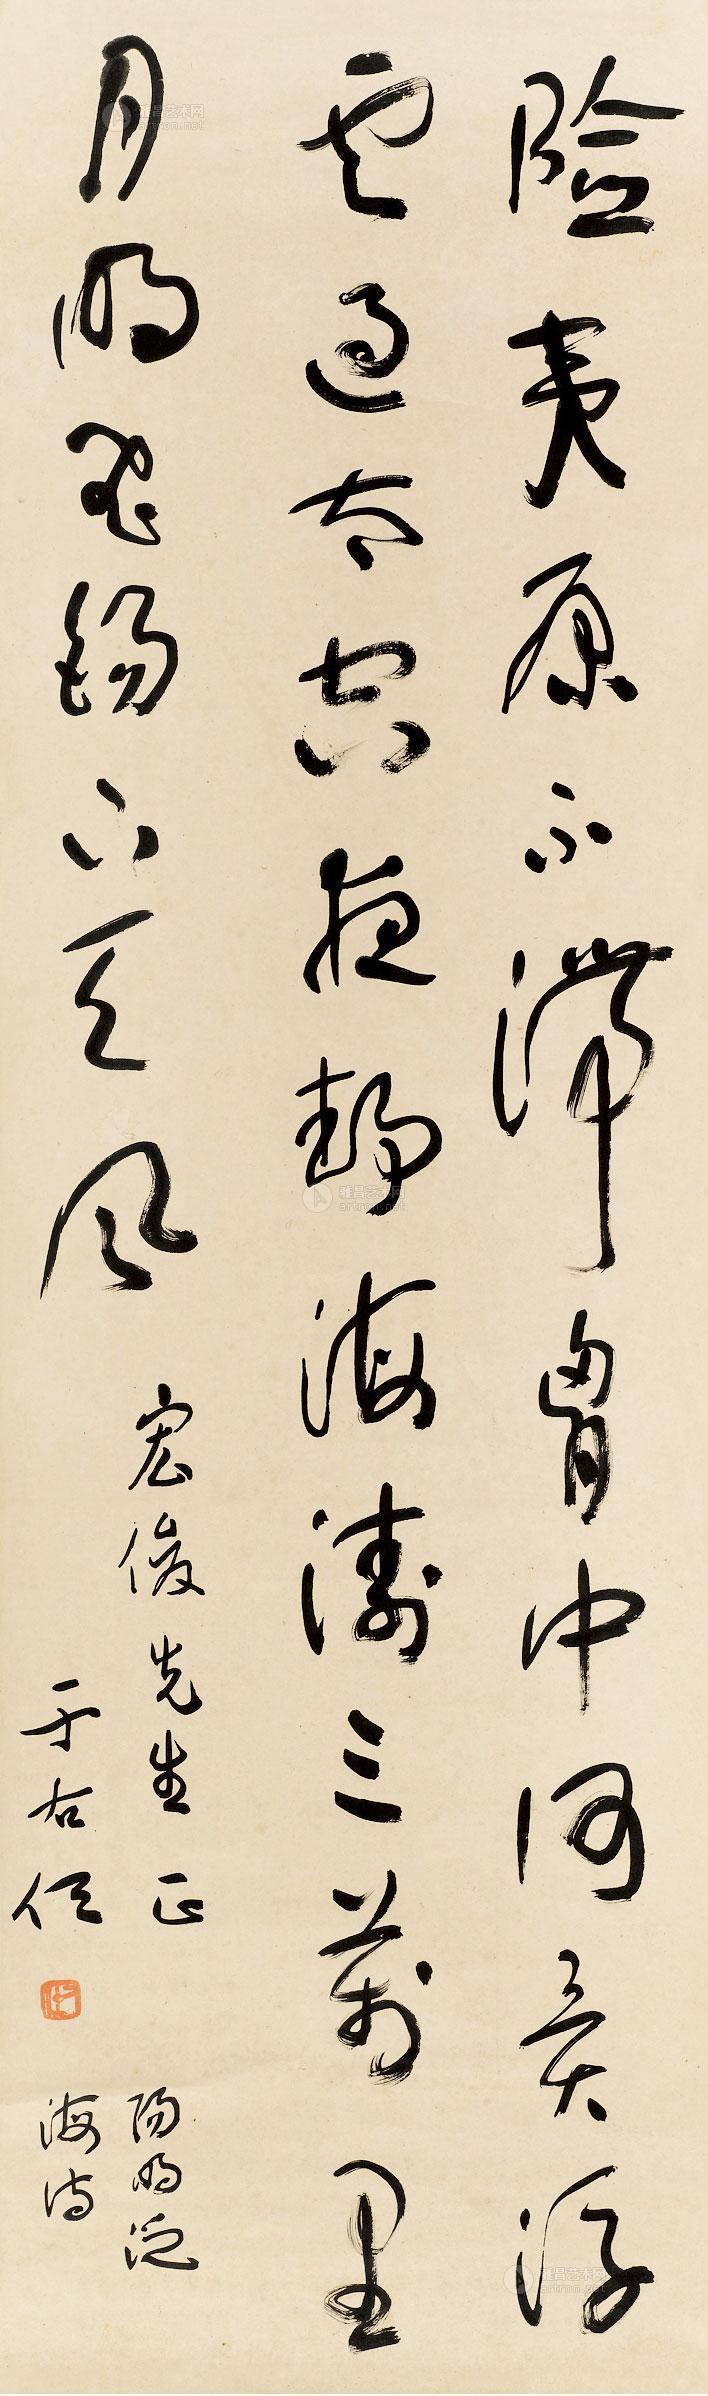 险夷原不滞胷中何异浮
云过太空夜静海涛三万里
月明飞锡下天风
宏俊先生正
于右任
阳明泛
海诗
雅昌艺术网
artron.net